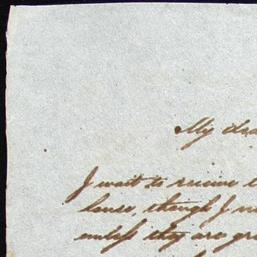 My dea
I wait to receive
house, though I
unless they are gre